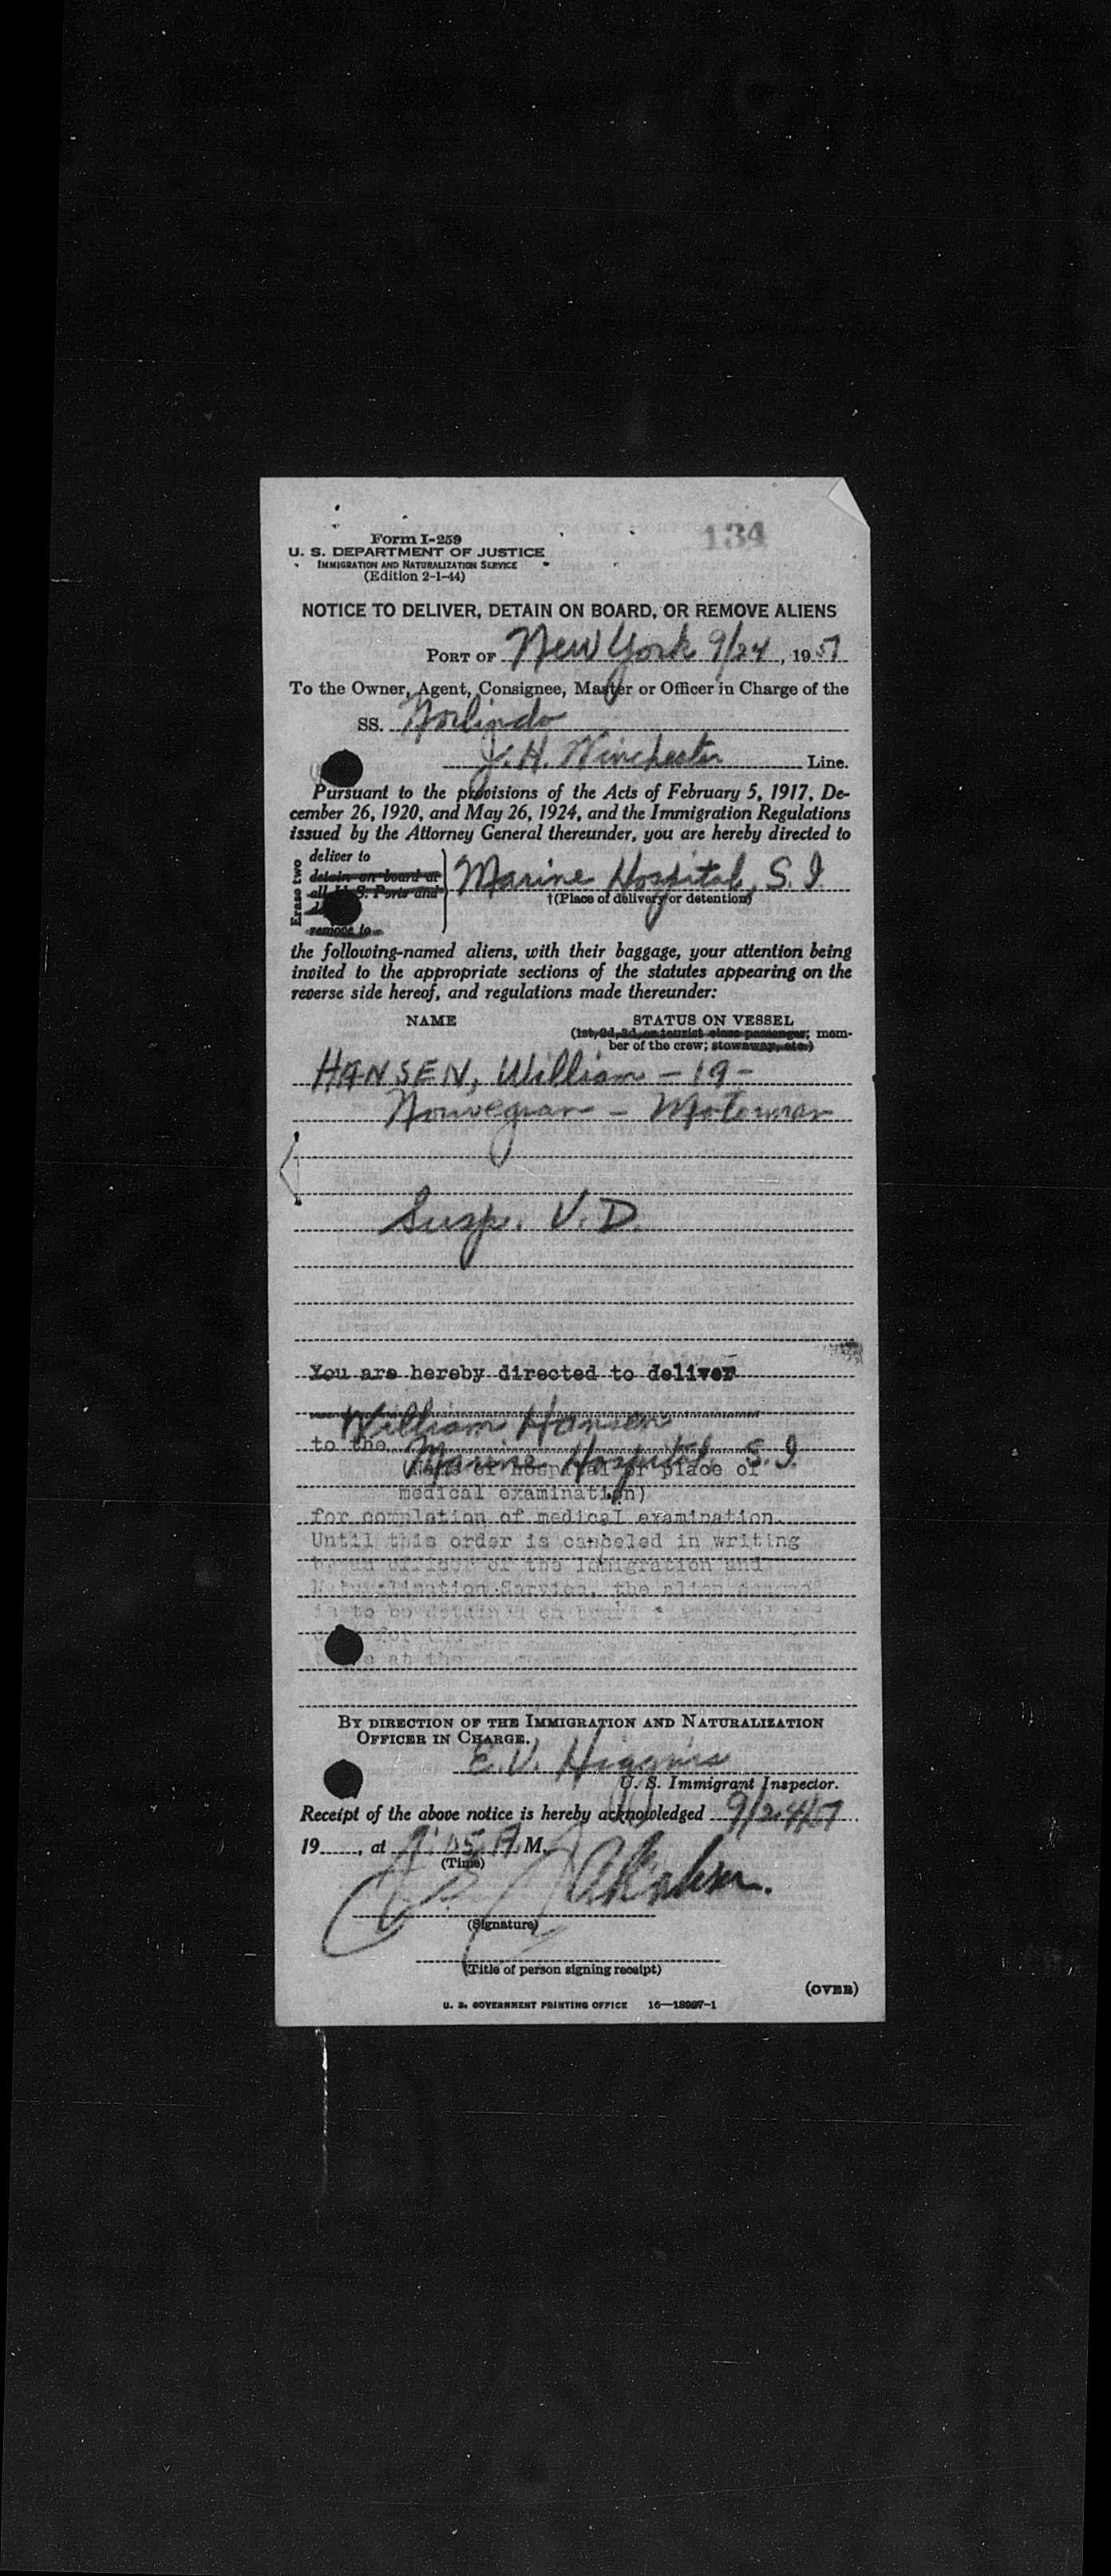 134
Form I-259
U. S. DEPARTMENT OF JUSTICE
IMMIGRATION AND NATURALIZATION SERVICE
(Edition 2-1-44)
NOTICE TO DELIVER, DETAIN ON BOARD, OR REMOVE ALIENS
PORT OF New York 9/24, 1951
To the Owner, Agent, Consignee, Master or Officer in Charge of the
SS. Norlindo
J. H. Winchester Line.
Pursuant to the provisions of the Acts of February 5, 1917, De-
cember 26, 1920, and May 26, 1924, and the Immigration Regulations
issued by the Attorney General thereunder, you are hereby directed to
Erase two
deliver to
detain on board at
all U. S. Ports and
remove to
Marine Hospital, S. I.
†(Place of delivery or detention)
the following-named aliens, with their baggage, your attention being
invited to the appropriate sections of the statutes appearing on the
reverse side hereof, and regulations made thereunder:
NAME STATUS ON VESSEL
(1st, 2d, 3d, or tourist class passenger; mem-
ber of the crew; stowaway, etc.)
HANSEN, William - 19 -
Norwegian - Motorman
Susp. V. D.
You are hereby directed to deliver
William Hansen
to the Marine Hospital, S. I.
(Name of hospital or place of
medical examination)
for completion of medical examination.
Until this order is canceled in writing
by an officer of the Immigration and
Naturalization Service, the alien
is to be detained on
for
at the
BY DIRECTION OF THE IMMIGRATION AND NATURALIZATION
OFFICER IN CHARGE.
E. V. Higgins
U. S. Immigrant Inspector.
Receipt of the above notice is hereby acknowledged 9/24/51
19____, at 9:05 A M.
(Time)
(Signature)
(Title of person signing receipt)
(OVER)
U. S. GOVERNMENT PRINTING OFFICE 16—18997-1